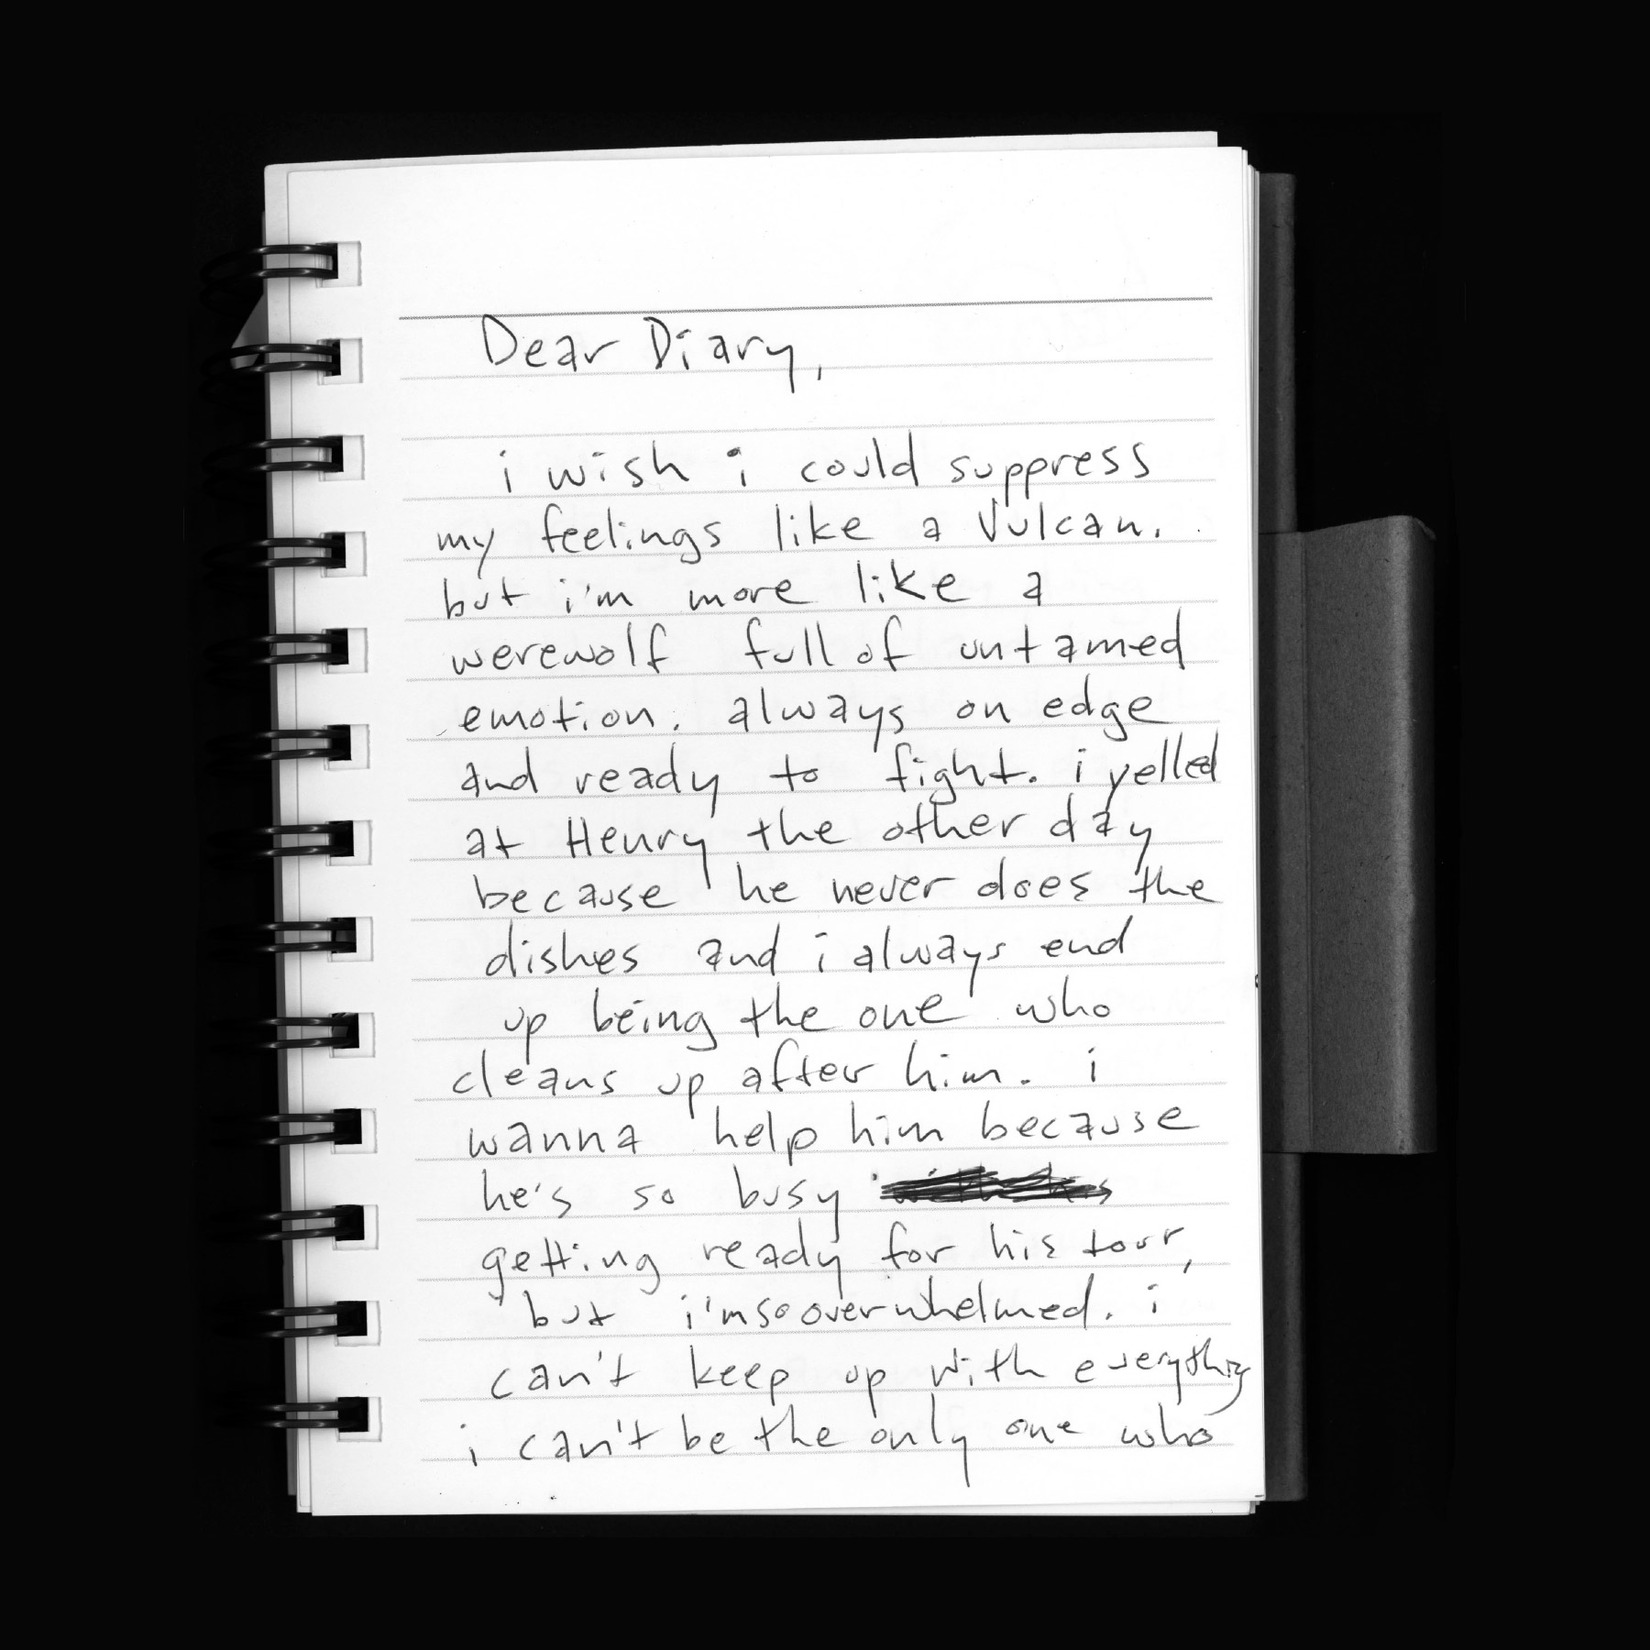 Dear Diary,
i wish i could suppress
my feelings like a Vulcan.
but i'm more like a
werewolf full of untamed
emotion. always on edge
and ready to fight. i yelled
at Henry the other day
because he never does the
dishes and i always end
up being the one who
cleans up after him. i
wanna help him because
he's so busy
getting ready for his tour,
but i'm so overwhelmed. i
can't keep up with everything
i can't be the only one who